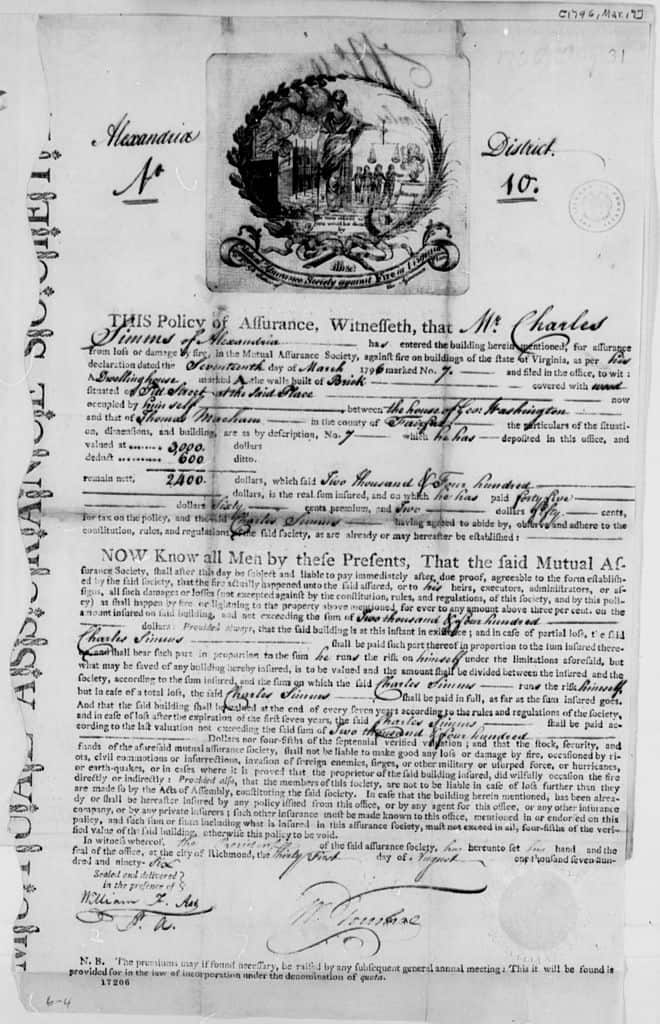 [1796, Mar. 17]
31
Alexandria
District.
No
10.
Mutual Assurance Society against Fire in Virginia
MUTUAL ASSURANCE SOCIETY
THIS Policy of Assurance, Witnesseth, that Mr. Charles
Simms of Alexandria has entered the building herein mentioned, for assurance
from loss or damage by fire, in the Mutual Assurance Society, against fire on buildings of the state of Virginia, as per his
declaration dated the Seventeenth day of March 1796 marked No. 7. and filed in the office, to wit:
A Dwellinghouse marked A the walls built of Brick covered with wood
situated on Pitt Street at the said Place now
occupied by himself between the house of Geo: Washington
and that of Thomas in the county of Fairfax the particulars of the situati-
on, dimensions, and building, are as by description, No. 7 which he has deposited in this office, and
valued at 3,000. dollars
deduct 600 ditto.
remain nett, 2,400 dollars, which said Two thousand & Four hundred
dollars, is the real sum insured, and on which he has paid forty five
dollars Sixty cents premium, and Two dollars fifty cents,
for tax on the policy, and the said Charles Simms having agreed to abide by, observe and adhere to the
constitution, rules, and regulations of the said society, as are already or may hereafter be established:
NOW Know all Men by these Presents, That the said Mutual As-
surance Society, shall after this day be subject and liable to pay immediately after due proof, agreeable to the form establish-
ed by the said society, that the fire actually happened unto the said assured, or to his heirs, executors, administrators, or as-
signs, all such damages or losses (not excepted against by the constitution, rules, and regulations, of this society, and by this poli-
cy) as shall happen by fire or lightning to the property above mentioned for ever to any amount above three per cent. on the
amount insured on said building, and not exceeding the sum of Two thousand & four hundred
dollars: Provided always, that the said building is at this instant in existence; and in case of partial loss, the said
Charles Simms shall be paid such part thereof in proportion to the sum insured there-
on, and shall bear such part in proportion to the sum he runs the risk on himself under the limitations aforesaid, but
what may be saved of any building hereby insured, is to be valued and the amount shall be divided between the insured and the
society, according to the sum insured, and the sum on which the said Charles Simms runs the risk himself,
but in case of a total loss, the said Charles Simms shall be paid in full, as far as the sum insured goes.
And that the said building shall be valued at the end of every seven years according to the rules and regulations of the society,
and in case of loss after the expiration of the first seven years, the said Charles Simms shall be paid ac-
cording to the last valuation not exceeding the said sum of Two thousand & four hundred
Dollars nor four-fifths of the septennial verified valuation; and that the stock, security, and
funds of the aforesaid mutual assurance society, shall not be liable to make good any loss or damage by fire, occasioned by ri-
ots, civil commotions or insurrections, invasion of foreign enemies, sieges, or other military or usurped force, or hurricanes,
or earth-quakes, or in cases where it is proved that the proprietor of the said building insured, did wilfully occasion the fire
directly or indirectly: Provided also, that the members of this society, are not to be liable in case of loss further than they
are made so by the Acts of Assembly, constituting the said society. In case that the building herein mentioned, has been alrea-
dy or shall be hereafter insured by any policy issued from this office, or by any agent for this office, or any other insurance
company, or by any private insurers; such other insurance must be made known to this office, mentioned in or endorsed on this
policy, and such sum or sums including what is insured in this assurance society, must not exceed in all, four-fifths of the veri-
fied value of the said building, otherwise this policy to be void.
In witness whereof, the President of the said assurance society, has hereunto set his hand and the
seal of the office, at the city of Richmond, the Thirty First day of August one thousand seven hun-
dred and ninety-six
Sealed and delivered
in the presence of
William F. Ast
P. A.
W. Foushee
N. B. The premiums may if found necessary, be raised by any subsequent general annual meeting: This it will be found is
provided for in the law of incorporation under the denomination of quota.
17206
6-4